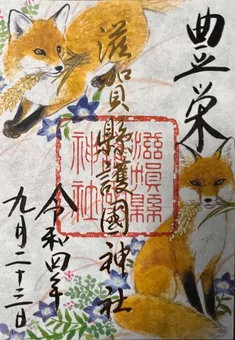 豊栄
滋賀縣護國神社
滋賀縣護國神社
令和四年
九月二十三日